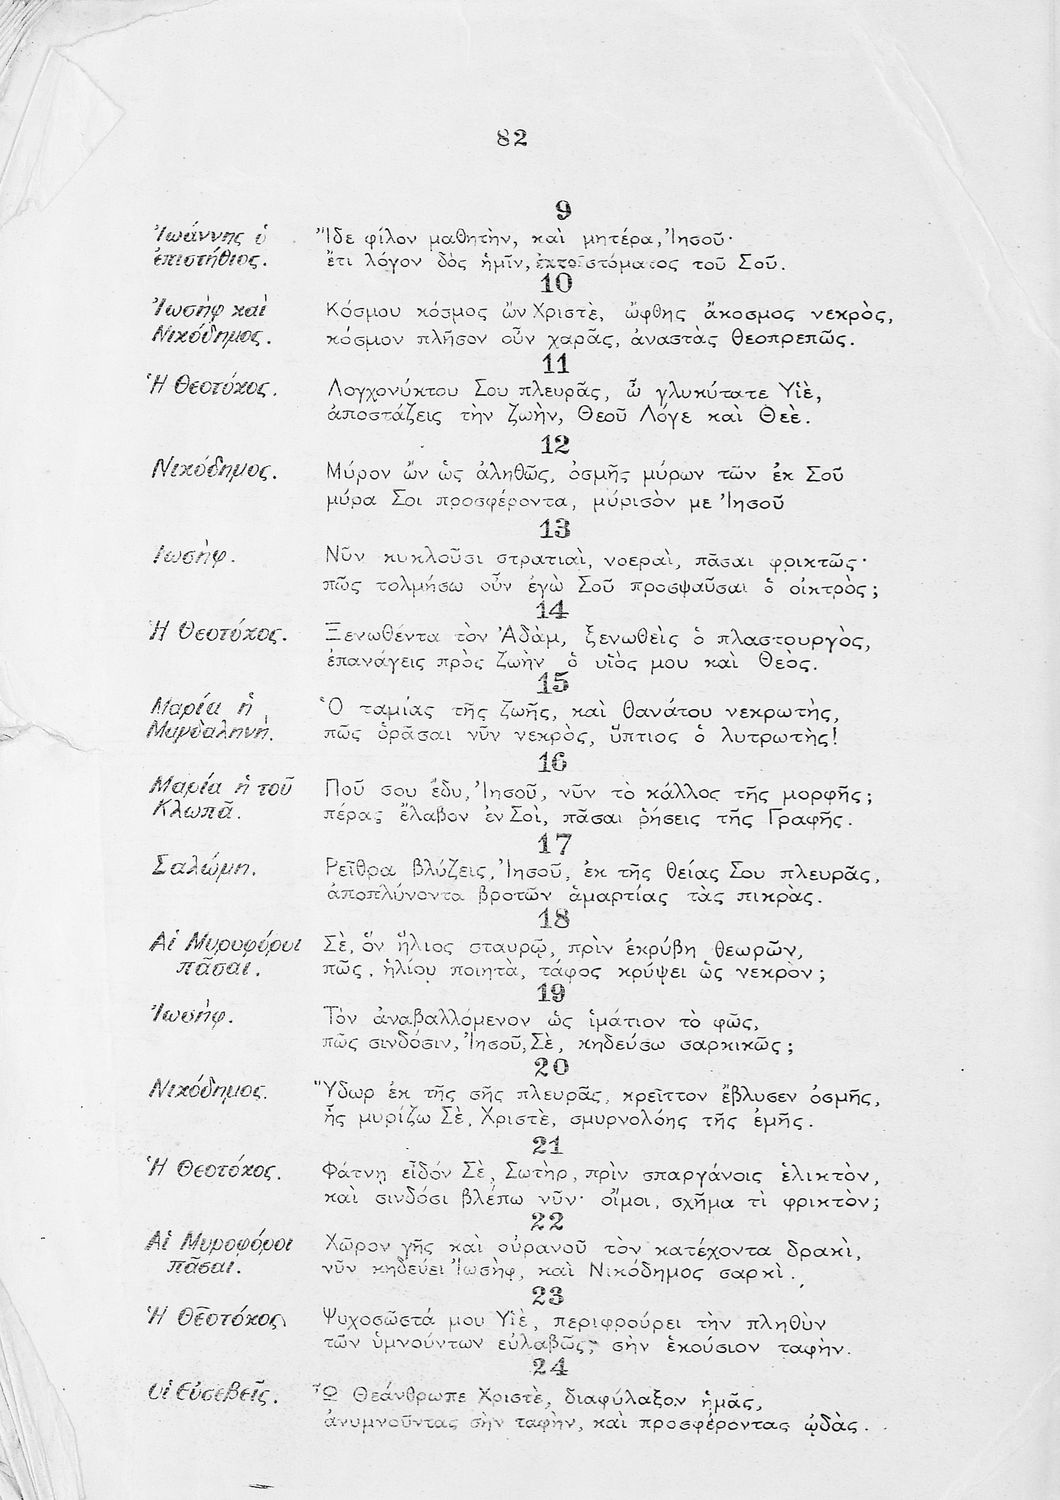 82
9
Ἰωάννης ὁ Ἴδε φίλον μαθητὴν, καὶ μητέρα, Ἰησοῦ·
ἐπιστήθιος. ἔτι λόγον δὸς ἡμῖν, ἐκ τοῦ στόματος τοῦ Σοῦ.
10
Ἰωσὴφ καὶ Κόσμου κόσμος ὤν Χριστὲ, ὤφθης ἄκοσμος νεκρὸς,
Νικόδημος. κόσμιον πλῆσον οὖν χαρᾶς, ἀναστὰς θεοπρεπῶς.
11
Ἡ Θεοτόκος. Λογχονύκτου Σου πλευρᾶς, ὦ γλυκύτατε Υἱὲ,
ἀποστάζεις τὴν ζωὴν, Θεοῦ Λόγε καὶ Θεὲ.
12
Νικόδημος. Μύρον ὤν ὡς ἀληθῶς, ὀσμῆς μύρων τῶν ἐκ Σοῦ
μύρα Σοι προσφέροντα, μύρισὸν με Ἰησοῦ
13
Ἰωσὴφ. Νῦν κυκλοῦσι στρατιαὶ, νοεραὶ, πᾶσαι φρικτῶς·
πῶς τολμήσω οὖν ἐγὼ Σοῦ προσψαῦσαι ὁ οἰκτρὸς;
14
Ἡ Θεοτόκος. Ξενωθέντα τὸν Ἀδὰμ, ξενωθεὶς ὁ πλαστουργὸς,
ἐπανάγεις πρὸς ζωὴν ὁ υἱὸς μου καὶ Θεὸς.
15
Μαρία ἡ Ὁ ταμίας τῆς ζωῆς, καὶ θανάτου νεκρωτὴς,
Μαγδαληνὴ. πῶς ὁρᾶσαι νῦν νεκρὸς, ὕπτιος ὁ λυτρωτὴς!
16
Μαρία ἡ τοῦ Ποῦ σου ἔδυ, Ἰησοῦ, νῦν τὸ κάλλος τῆς μορφῆς;
Κλωπᾶ. πέρας ἔλαβον ἐν Σοὶ, πᾶσαι ῥήσεις τῆς Γραφῆς.
17
Σαλώμη. Ρεῖθρα βλύζεις, Ἰησοῦ, ἐκ τῆς θείας Σου πλευρᾶς,
ἀποπλύνοντα βροτῶν ἁμαρτίας τὰς πικρὰς.
18
Αἱ Μυροφόροι Σὲ, ὅν ἥλιος σταυρῷ, πρὶν ἐκρύβη θεωρῶν,
πᾶσαι. πῶς, ἡλίου ποιητὰ, τάφος κρύψει ὡς νεκρὸν;
19
Ἰωσὴφ. Τὸν ἀναβαλλόμενον ὡς ἱμάτιον τὸ φῶς,
πῶς σινδόσιν, Ἰησοῦ, Σὲ, κηδεύσω σαρκικῶς;
20
Νικόδημος. Ὕδωρ ἐκ τῆς σῆς πλευρᾶς, κρεῖττον ἔβλυσεν ὀσμῆς,
ἧς μυρίζω Σὲ, Χριστὲ, σμυρνολόης τῆς ἐμῆς.
21
Ἡ Θεοτόκος. Φάτνῃ εἶδόν Σὲ, Σωτὴρ, πρὶν σπαργάνοις ἑλικτὸν,
καὶ σινδόσι βλέπω νῦν· οἴμοι, σχῆμα τὶ φρικτὸν;
22
Αἱ Μυροφόροι Χῶρον γῆς καὶ οὐρανοῦ τὸν κατέχοντα δρακὶ,
πᾶσαι. νῦν κηδεύει Ἰωσὴφ, καὶ Νικόδημος σαρκὶ.
23
Ἡ Θεοτόκος Ψυχοσῶστά μου Υἱὲ, περιφρούρει τὴν πληθὺν
τῶν ὑμνούντων εὐλαβῶς, σὴν ἑκούσιον ταφὴν.
24
Οἱ Εὐσεβεῖς. Ὦ Θεάνθρωπε Χριστὲ, διαφύλαξον ἡμᾶς,
ἀνυμνοῦντας σὴν ταφὴν, καὶ προσφέροντας ᾠδὰς.